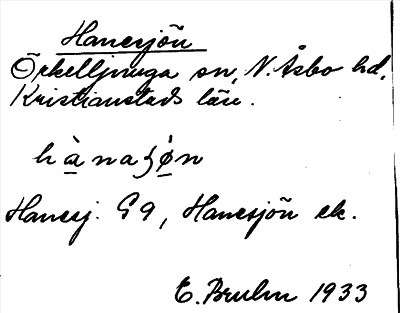 Hanesjön
Örkelljunga sn, N. Åsbo hd.
Kristianstads län.
hànaʒö́n
Hanesj. G 9, Hanesjön ek.
E. Bruhn 1933